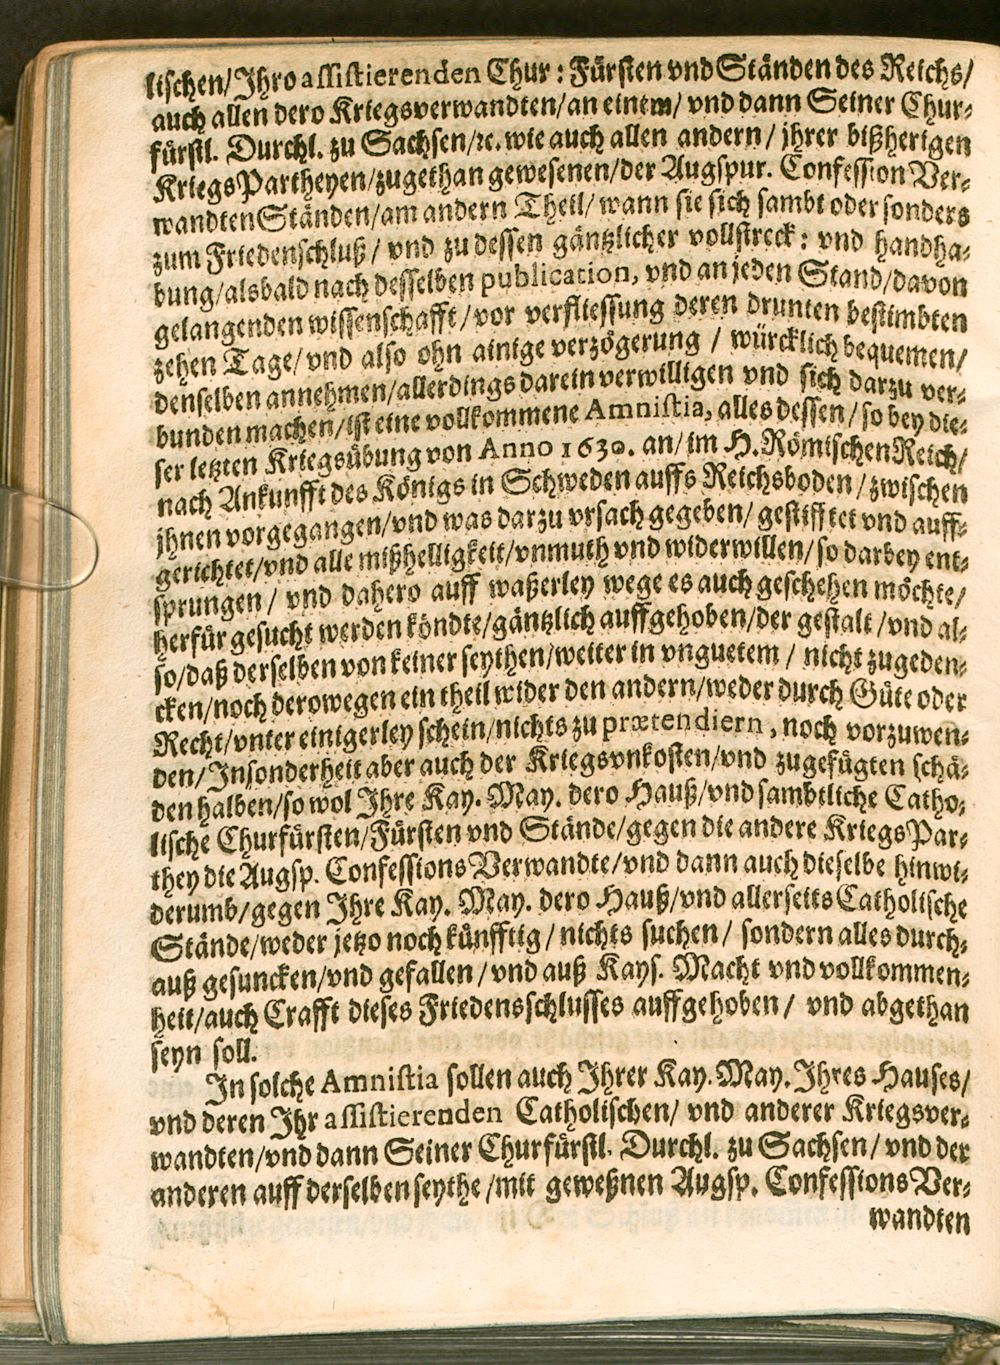 lischen/Ihro assistierenden Chur: Fürsten vnd Ständen des Reichs/
auch allen dero Kriegsverwandten/an einem/ vnd dann Seiner Chur-
fürstl. Durchl. zu Sachsen/ꝛc. wie auch allen andern/ jhrer bißherigen
KriegsPartheyen/zugethan gewesenen/der Augspur. Confession Ver-
wandten Ständen/am andern Theil/ wann sie sich sambt oder sonders
zum Friedenschluß/ vnd zu dessen gäntzlicher vollstreck: vnd handha-
bung/alsbald nach desselben publication, vnd an jeden Stand/davon
gelangenden wissenschafft/vor verfliessung deren drunten bestimbten
zehen Tage/vnd also ohn ainige verzögerung / würcklich bequemen/
denselben annehmen/allerdings darein verwilligen vnd sich darzu ver-
bunden machen/ist eine vollkommene Amnistia, alles dessen/ so bey die-
ser letzten Kriegsübung von Anno 1630. an/im H. Römischen Reich/
nach Ankunfft des Königs in Schweden auffs Reichsboden/zwischen
jhnen vorgegangen/vnd was darzu vrsach gegeben/ gestifftet vnd auff-
gerichtet/vnd alle mißhelligkeit/vnmuth vnd widerwillen/so darbey ent-
sprungen/ vnd dahero auff waßerley wege es auch geschehen möchte/
herfür gesucht werden köndte/gäntzlich auffgehoben/der gestalt/vnd al-
so/daß derselben von keiner seythen/weiter in vnguetem/ nicht zugeden-
cken/noch derowegen ein theil wider den andern/weder durch Güte oder
Recht/vnter einigerley schein/nichts zu prætendiern, noch vorzuwen-
den/Insonderheit aber auch der Kriegsvnkosten/vnd zugefügten schä-
den halben/so wol Ihre Kay. May. dero Hauß/vnd sambtliche Catho-
lische Churfürsten/Fürsten vnd Stände/gegen die andere KriegsPar-
they die Augsp. Confessions Verwandte/vnd dann auch dieselbe hinwi-
derumb/gegen Ihre Kay. May. dero Hauß/vnd allerseits Catholische
Stände/weder jetzo noch künfftig/ nichts suchen/ sondern alles durch-
auß gesuncken/vnd gefallen/vnd auß Kays. Macht vnd vollkommen-
heit/auch Crafft dieses Friedensschlusses auffgehoben/ vnd abgethan
seyn soll.
In solche Amnistia sollen auch Ihrer Kay. May. Ihres Hauses/
vnd deren Ihr assistierenden Catholischen/ vnd anderer Kriegsver-
wandten/vnd dann Seiner Churfürstl. Durchl. zu Sachsen/ vnd der
anderen auff derselben seythe/mit geweßnen Augsp. Confessions Ver-
wandten